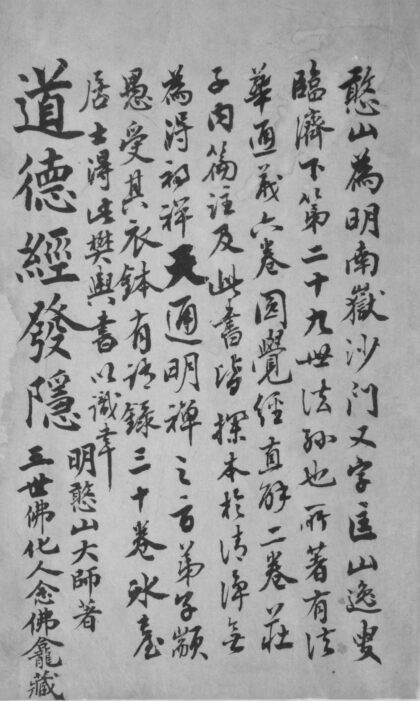 憨山為明南嶽沙门又字匡山逸叟
臨濟下第二十九世法孫也所著有法
華通義六卷圓覺經直解二卷莊
子内篇注及此書皆探本於清淨無
為淂初禅天通明禅之旨弟子顓
愚受其衣鉢有语錄三十卷
居士淂此樊輿書以識
道德經發隱
明憨山大師著
三世佛化人念佛龕藏